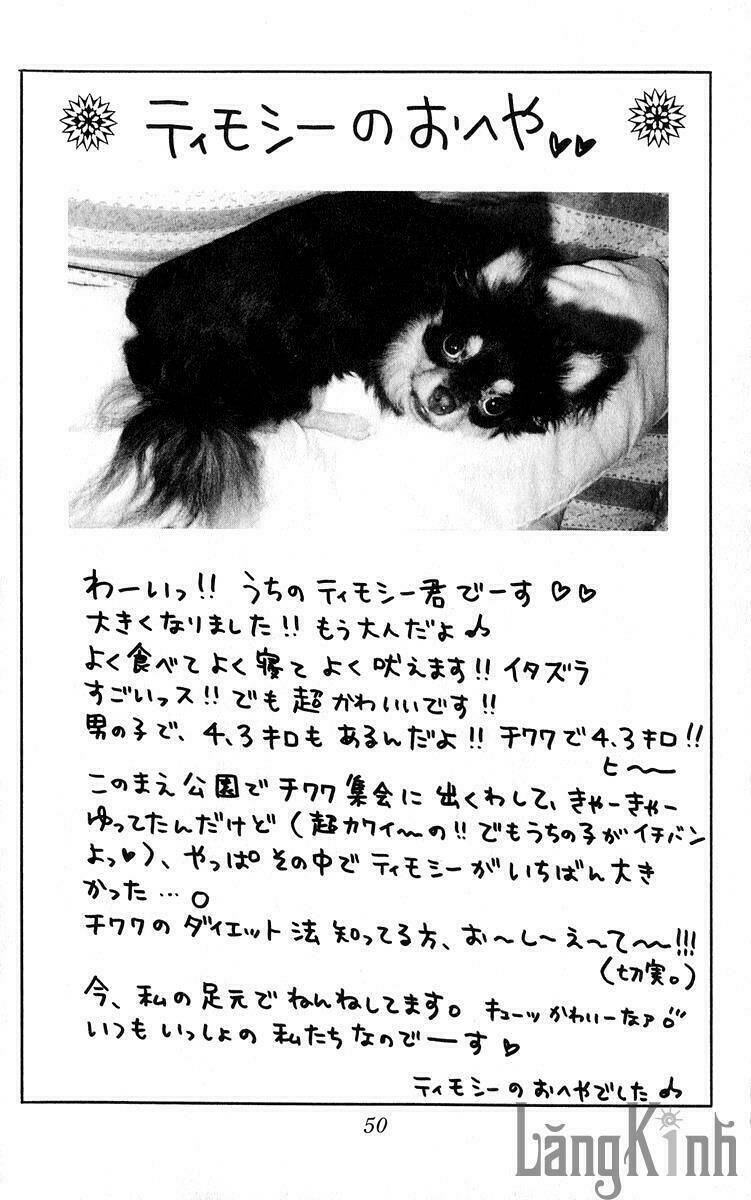 ティモシーのおへや♥♥
わーいっ!! うちの ティモシー君 でーす ♡♡
大きくなりました!! もう大人だよ♪
よく食べて よく寝て よく吠えます!! イタズラ
すごいっス!! でも 超 かわいいです!!
男の子で、4、3キロも あるんだよ!! チワワで4、3キロ!!
ヒ〜〜
このまえ公園でチワワ集会に 出くわして、きゃーきゃー
ゆってたんだけど (超カワイ〜の!! でもうちの子がイチバン
よっ♥)、やっぱ その中で ティモシーがいちばん大き
かった…。
チワワの ダイエット法 知ってる方、お〜し〜え〜て〜〜!!!
(切実。)
今、私の足元で ねんねしてます。 キューッ かわいーなァ。
いつも いっしょの 私たち なのでーーす ♥
ティモシーのおへやでした♪
50
LăngKính